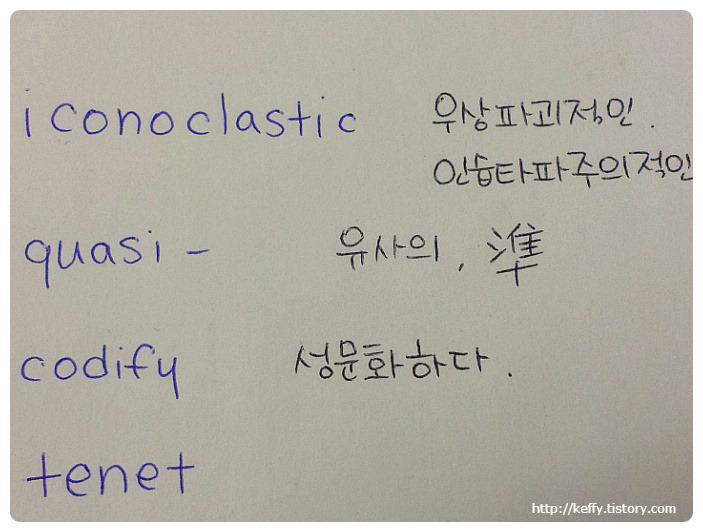 iconoclastic 우상파괴적인.
인습타파주의적인
quasi - 유사의, 準
codify 성문화하다.
tenet
http://keffy.tistory.com